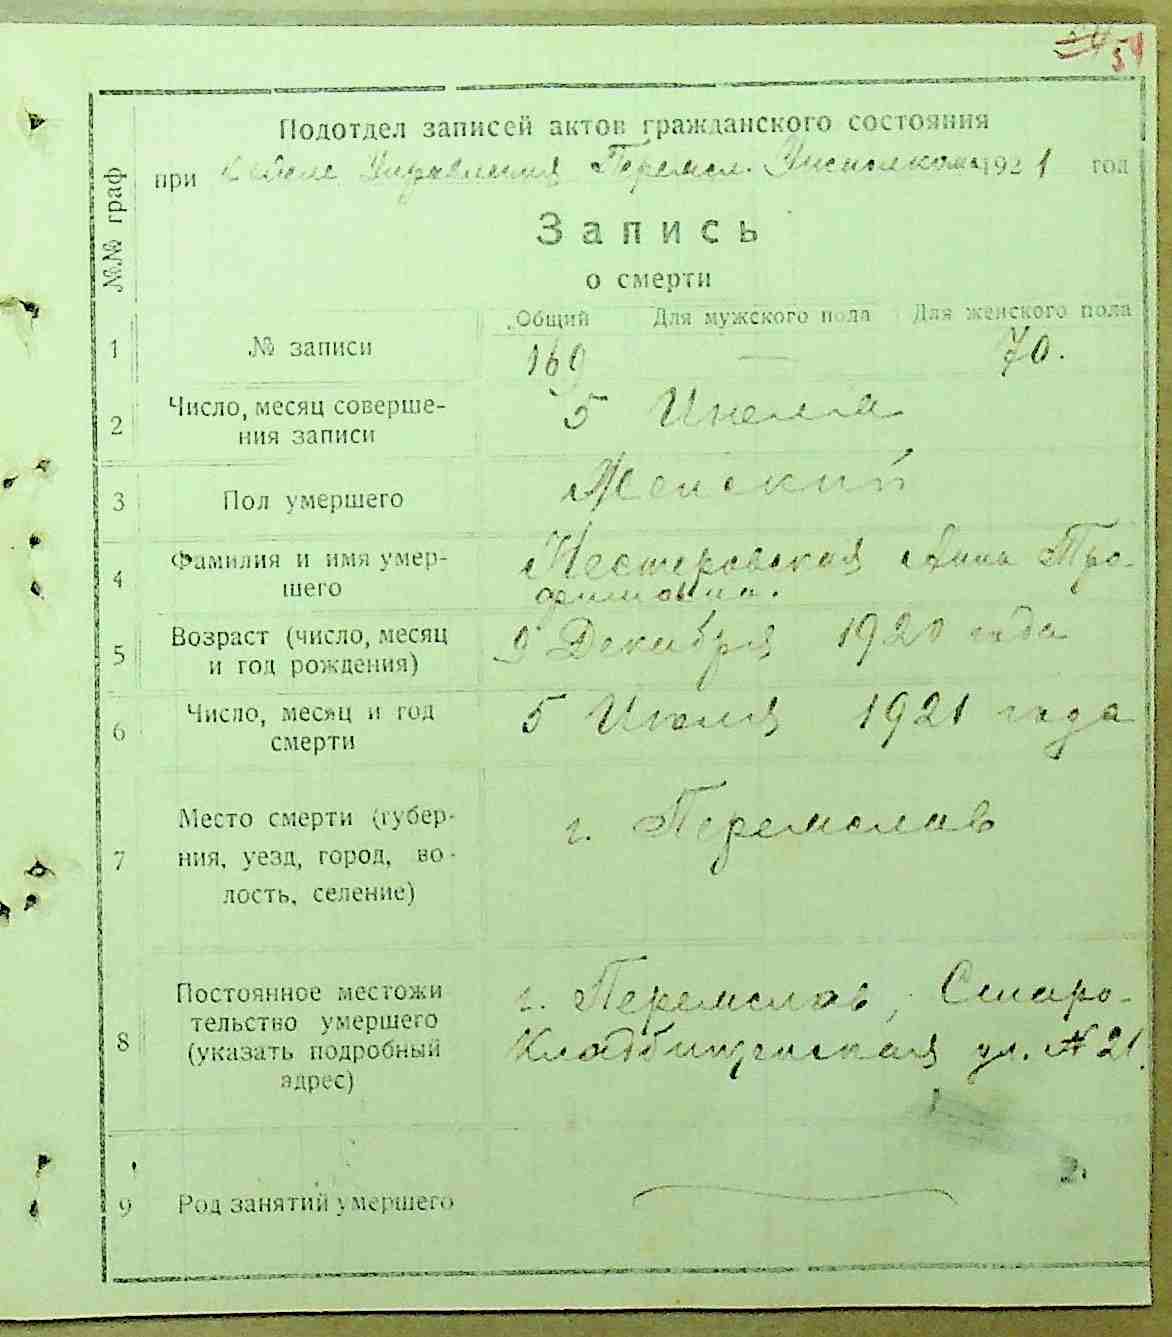 54
Подотдел записей актов гражданского состояния
при Управления Перемсл. Исполкома 1921 год
№№ граф
Запись
о смерти
Общий Для мужского пола Для женского пола
1 № записи 169 — 70.
2 Число, месяц соверше-
ния записи
5 Июля
3 Пол умершего Женский
4 Фамилия и имя умер-
шего
Нестеровская Анна Тро-
фимовна.
5 Возраст (число, месяц
и год рождения)
9 Декабря 1920 года
6 Число, месяц и год
смерти
5 Июля 1921 года
7 Место смерти (губер-
ния, уезд, город, во-
лость, селение)
г. Перемслав
8 Постоянное местожи
тельство умершего
(указать подробный
адрес)
г. Перемслав, Старо-
Кладбищенская ул. № 21.
2.
9 Род занятий умершего